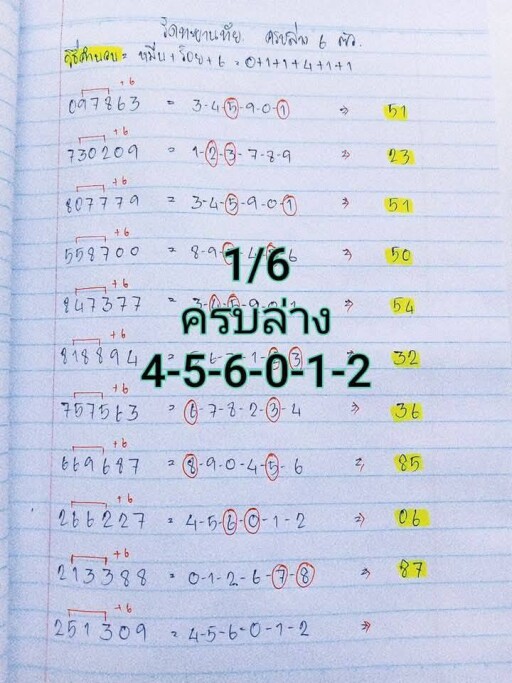 ครบล่าง 6 ตัว
วิธีคำนวณ = หมื่น + ร้อย + 6 = 0+1+1+4+1+1
+6
097863 = 3-4-5-9-0-1 => 51
+6
730209 = 1-2-3-7-8-9 => 23
+6
807779 = 3-4-5-9-0-1 => 51
+6
558700 = 8-9 4 6 => 50
+6
847377 = 3-4-5-9-0-1 => 54
+6
818894 = 3 3 => 32
+6
757563 = 6-7-8-2-3-4 => 36
+6
669687 = 8-9-0-4-5-6 => 85
+6
266227 = 4-5-6-0-1-2 => 06
+6
213388 = 0-1-2-6-7-8 => 87
+6
251309 = 4-5-6-0-1-2 =>
1/6
ครบล่าง
4-5-6-0-1-2